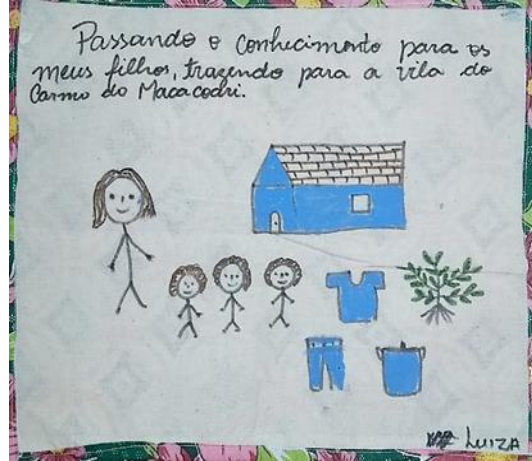 Passando o conhecimento para os
meus filhos, trazendo para a vila do
Carmo do Macacoari.
LUIZA